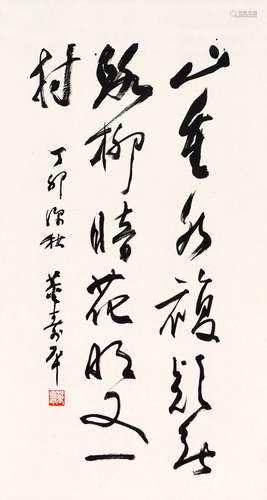 山重水複疑无
路柳暗花明又一
村
丁卯深秋 董壽平